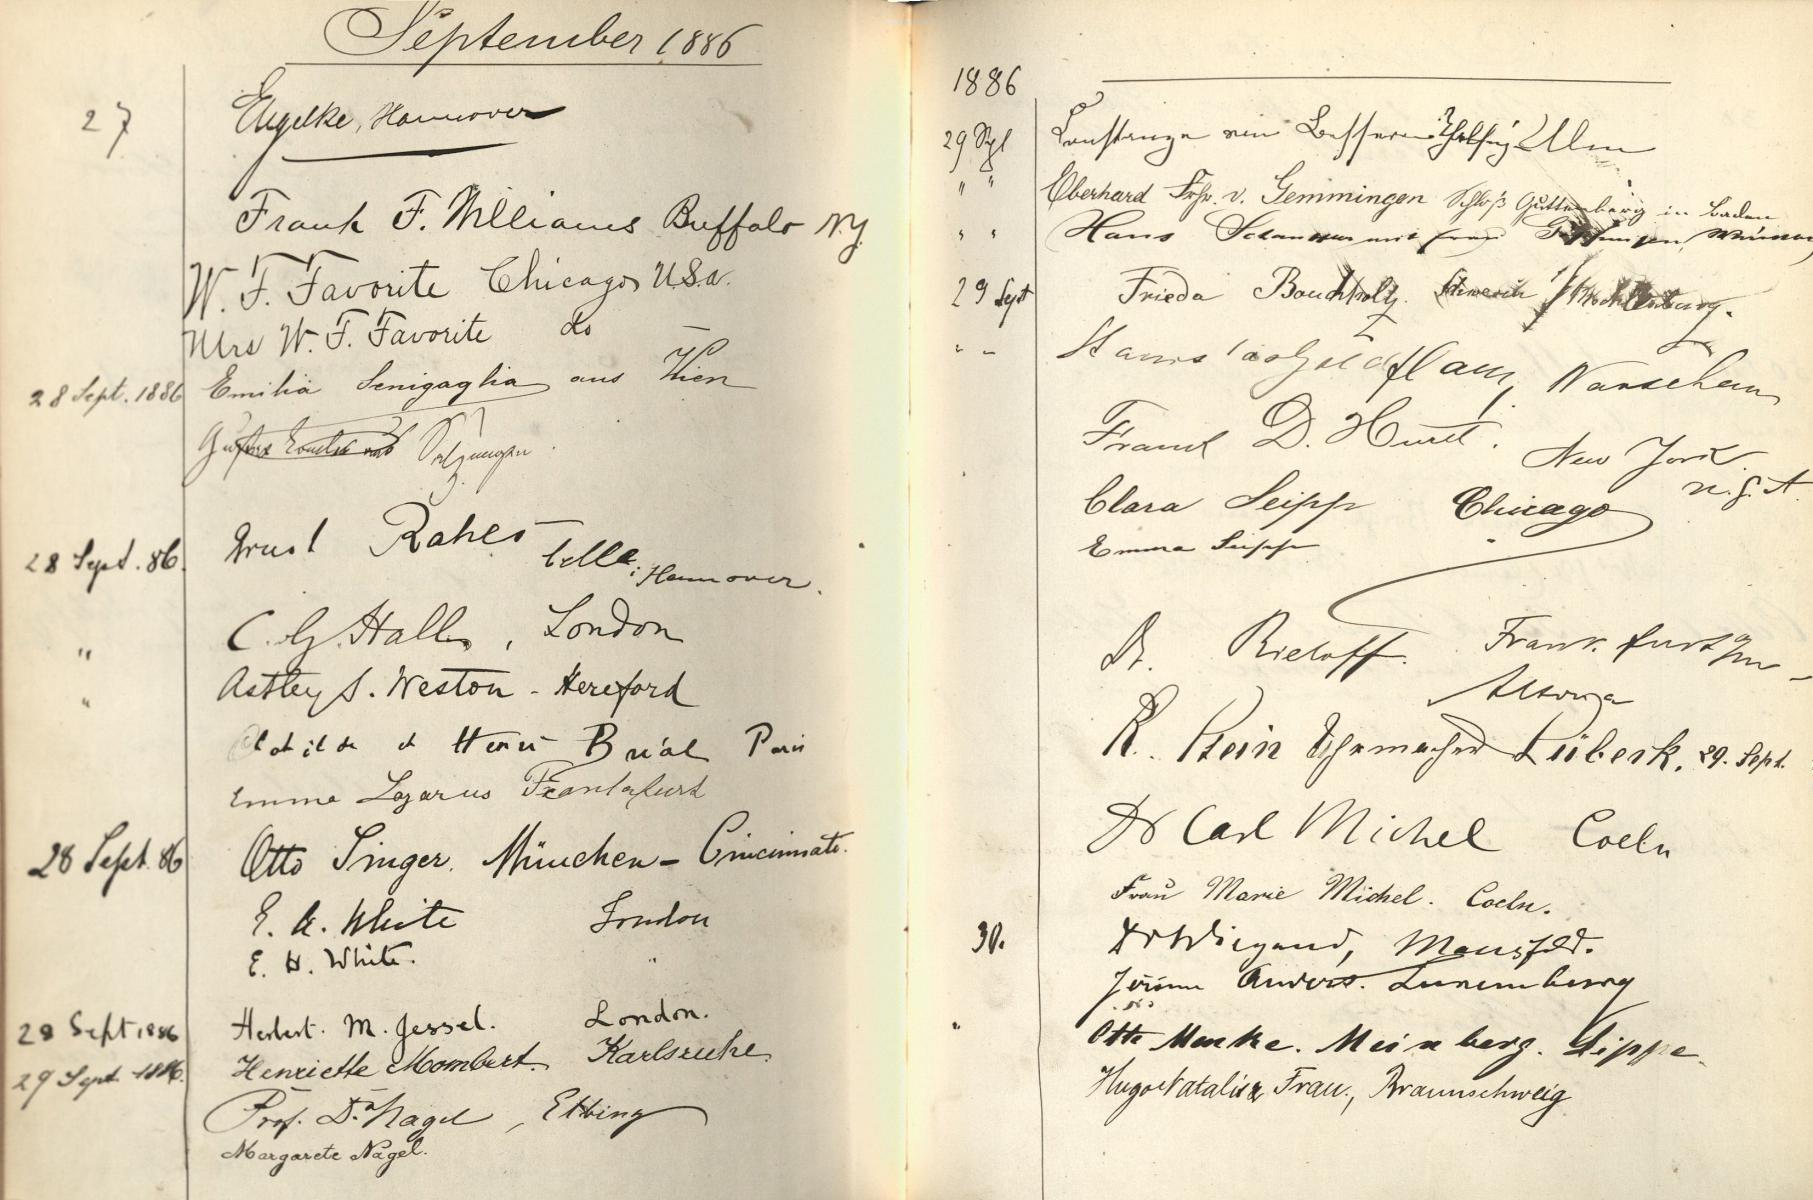 September 1886
27
Engelke, Hannover
Frank F. Williams Buffalo N.Y.
W. F. Favorite Chicago U.S.a.
Mrs W. F. Favorite do
28 Sept. 1886 Emilia Senigaglia aus Wien
Salzungen
28 Sept. 86. Ernst Rahes
Celle, Hannover.
" C. G. Hall, London
" Astley S. Weston - Hereford
Clotilde et Henri Bréal Paris
Emma Lazarus Frankfurt
28 Sept. 86 Otto Singer. München - Cincinnati.
E. A. White London
E. H. White. "
28 Sept 1886 Herbert. M. Jessel. London.
29 Sept. 1886. Henriette Mombert Karlsruhe
Prof. Dr. Nagel, Elbing
Margarete Nagel.
1886
29 Sept Constanze von Ulm
" " Eberhard Frhr. v. Gemmingen Schloß Guttenberg in Baden
" " Hans
29 Sept Frieda Schwerin i/Mecklenburg.
" " Warschau
D. Hurtt. New York
U.S.A.
Clara Seipp Chicago
Emma Seipp
Dr. Frankfurt a/m
Altona
R. Stein Uhrmacher Lübeck. 29. Sept.
Dr Carl Michel Coeln
Frau Marie Michel. Coeln.
30. Dr Wiegand, Mansfeld.
Luxemburg
" Otto Menke. Meinberg. Lippe.
Hugo Natalis & Frau., Braunschweig